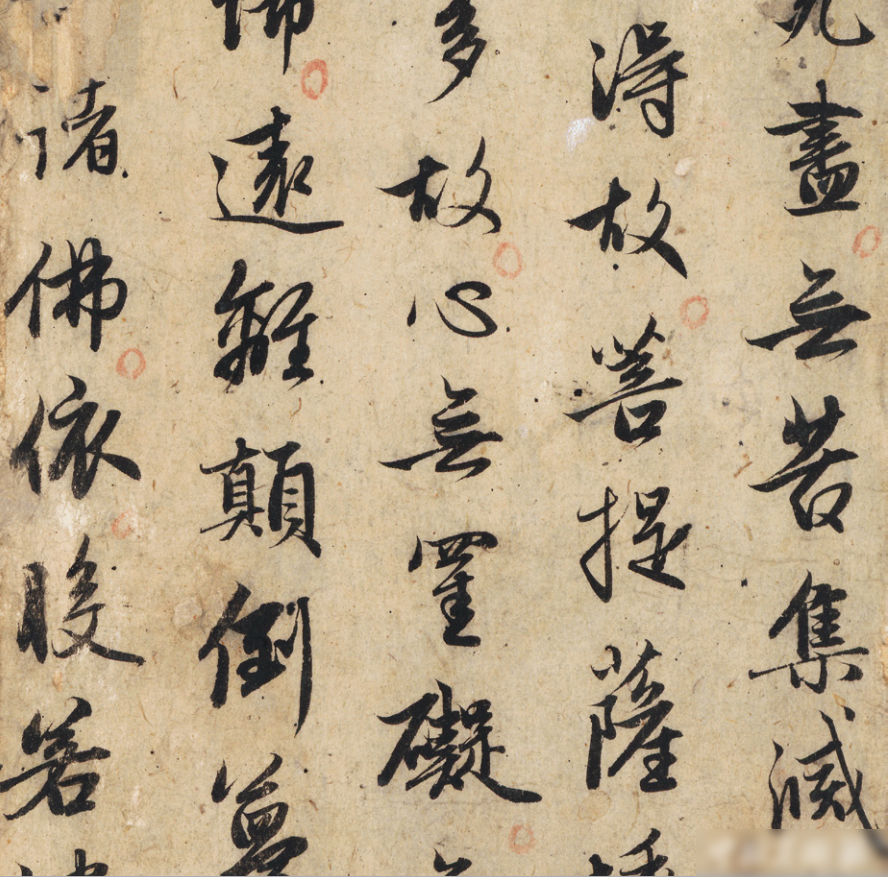 盡無苦集滅
得故菩提薩
多故心無罣礙
怖遠離顛倒夢
諸佛依般若